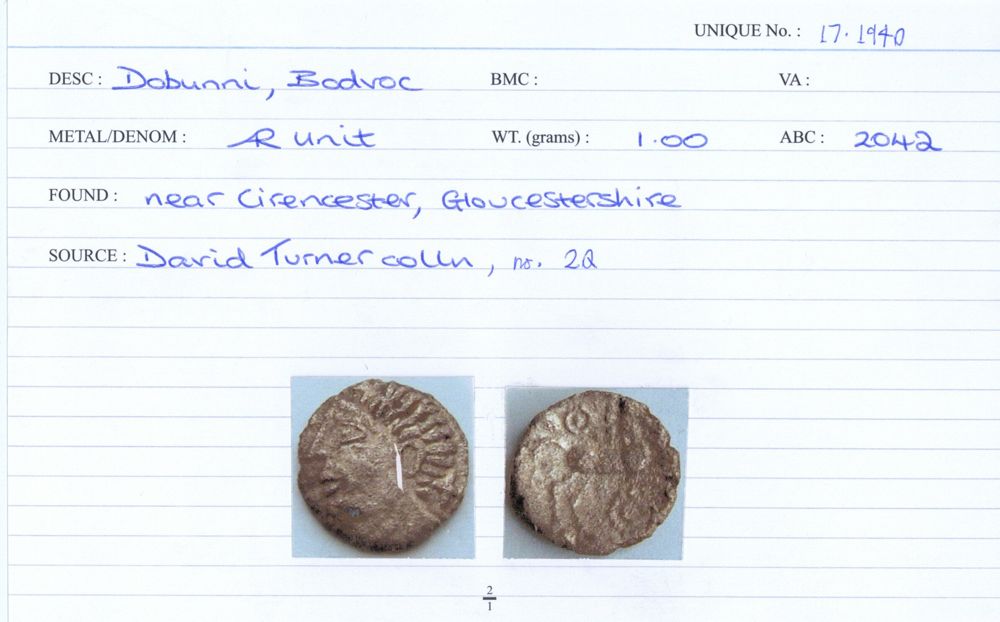 UNIQUE No. : 17.1940
DESC : Dobunni, Bodvoc BMC : VA :
METAL/DENOM : AR unit WT. (grams) : 1.00 ABC : 2042
FOUND : near Cirencester, Gloucestershire
SOURCE : David Turner colln, no. 22
2
1